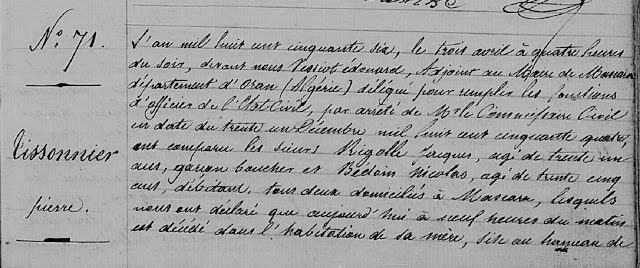 N.° 71.
Tissonnier
pierre.
L'an mil huit cent cinquante six, le trois avril à quatre heures
du soir, devant nous Vessiot édouard, Adjoint au Maire de Mascara
département d'Oran (Algérie) délégué pour remplir les fonctions
d'officier de l'Etat Civil, par arrêté de Mr le Commissaire Civil
en date du trente un Décembre mil huit cent cinquante quatre,
ont comparu les sieurs Rigolle Jacques, agé de trente un
ans, garçon boucher et Bedoin Nicolas, agé de trente cinq
ans, débitant, tous deux domiciliés à Mascara, lesquels
nous ont déclaré que aujourd'hui à neuf heures du matin
est décédé dans l'habitation de sa mère, sise au hameau de